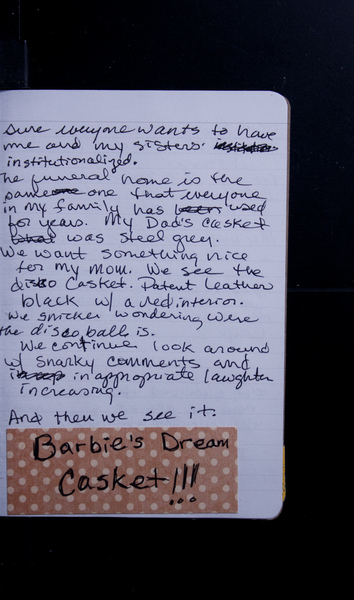 sure everyone wants to have
me and my sisters
institutionalized.
The funeral home is the
same one that everyone
in my family has used
for years. My Dad's casket
was steel grey.
We want something nice
for my mom. We see the
disco Casket. Patent leather
black w/ a red interior.
We snicker wondering were
the disco balls is.
We continue look around
w/ snarky comments and
inappropriate laughter
increasing.
And then we see it.
Barbie's Dream
Casket!!!
...